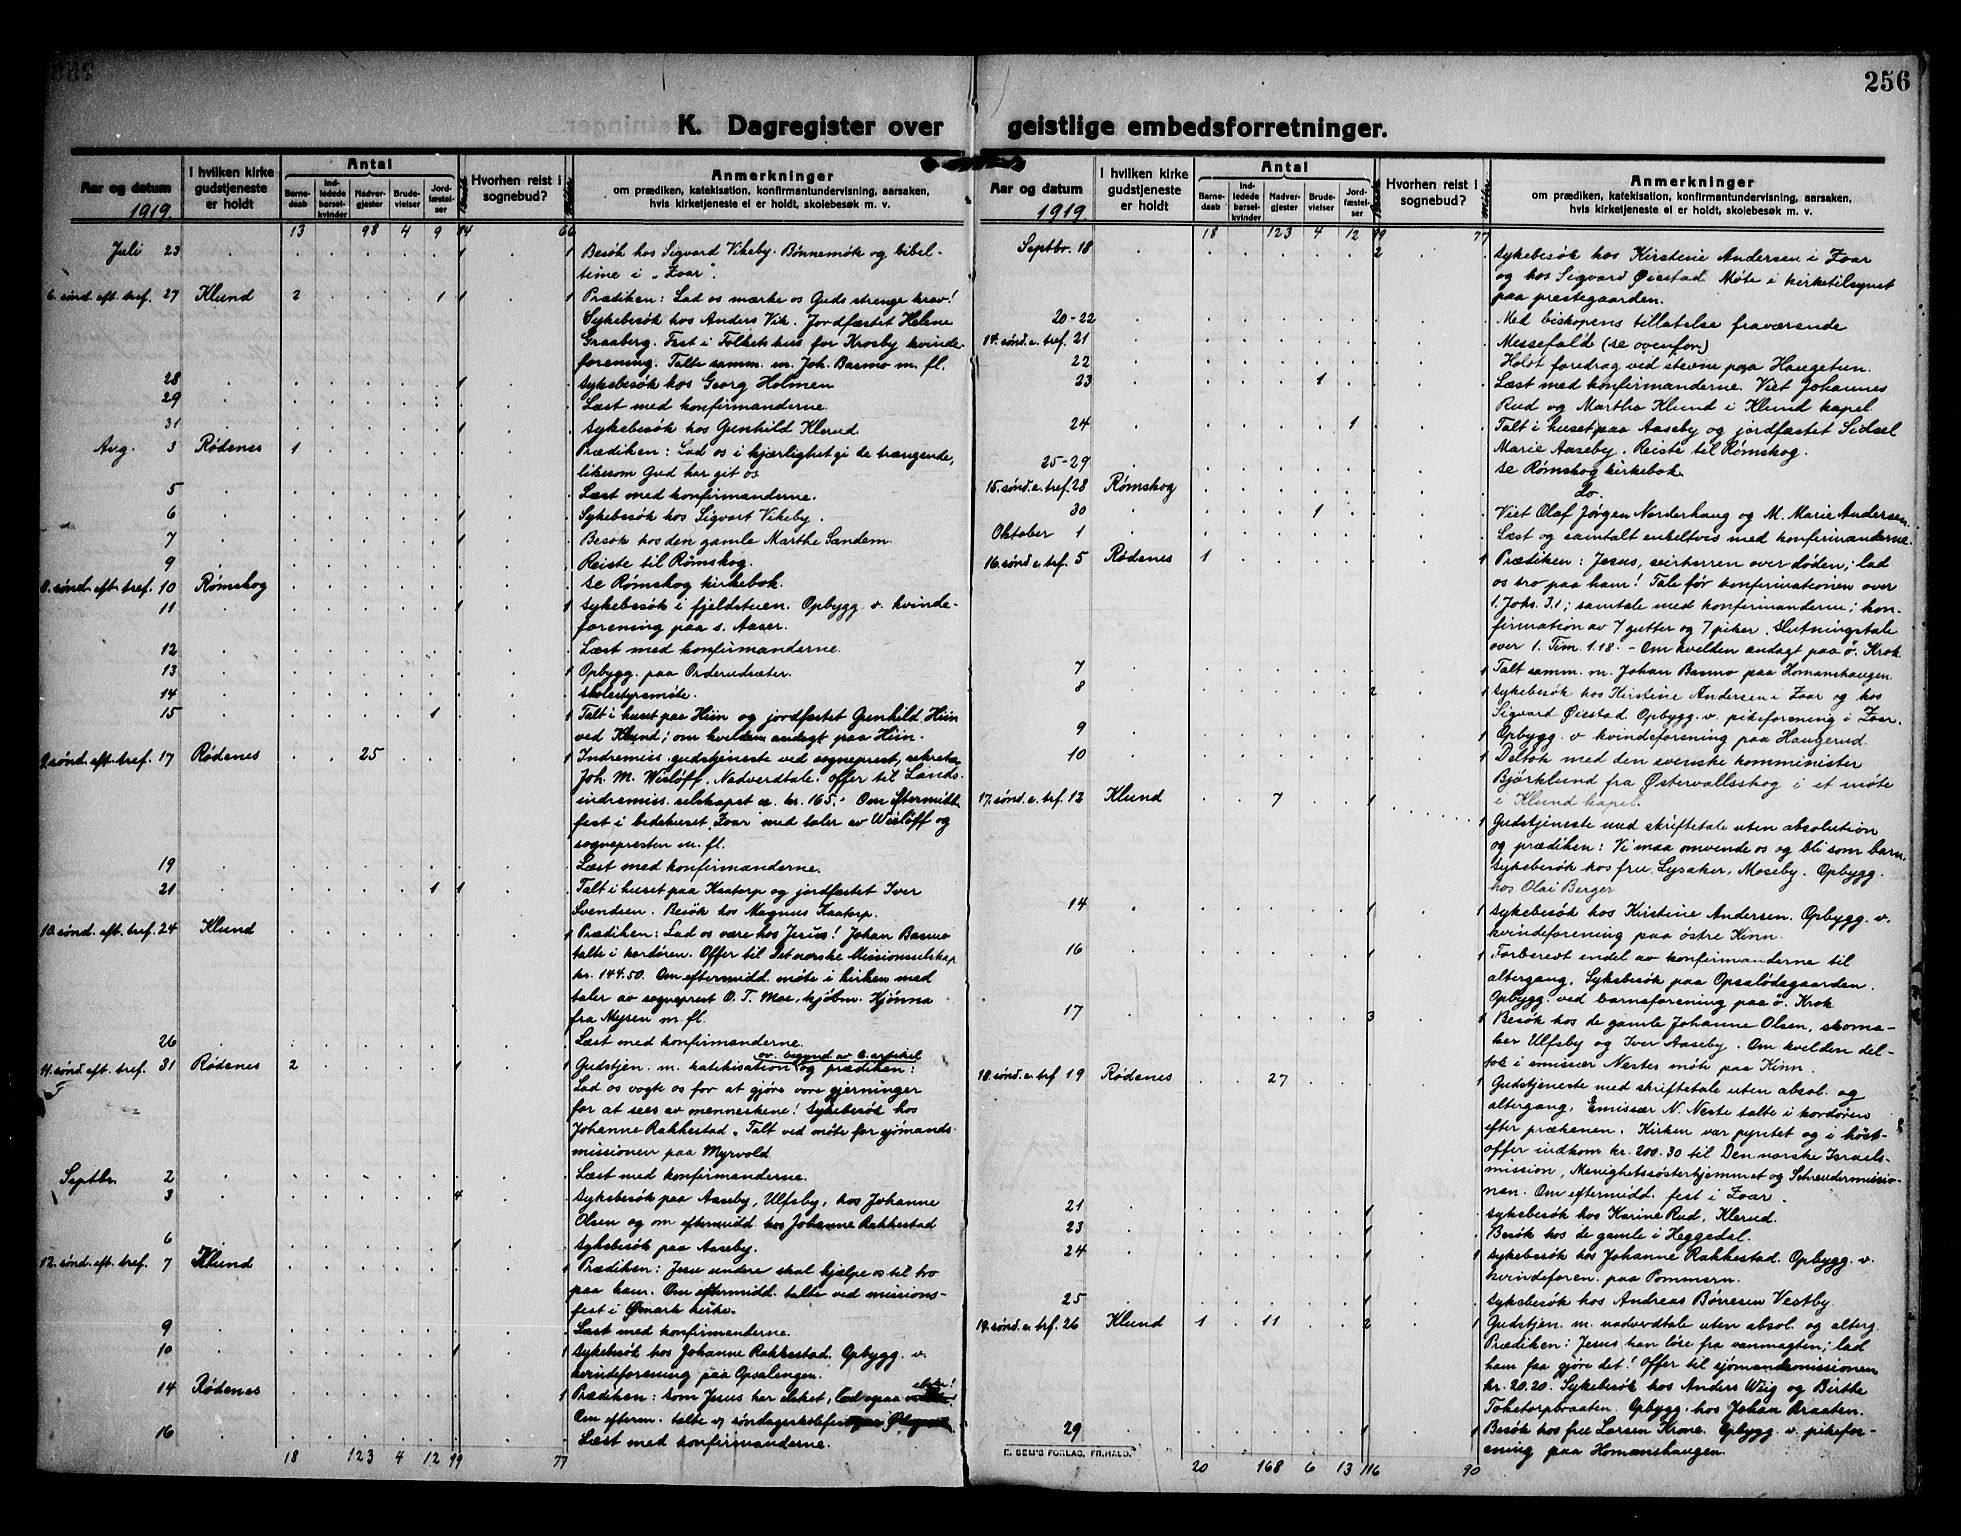 256
K. Dagregister over geistlige embedsforretninger.
Aar og datum 1919.
I hvilken kirke gudstjeneste er holdt
Antal
Barnedaab
Indledede barselkvinder
Nadvergjester
Brudevielser
Jordfæstelser
Hvorhen reist i sognebud?
Anmerkninger
om prædiken, katekisation, konfirmantundervisning, aarsaken,
hvis kirketjeneste ei er holdt, skolebesøk m. v.
13 98 4 9 84 66
Juli 23 1 1 Besøk hos Sigvard Vikeby. Bønnemøk og bibel-
time i "Zoar".
6. sønd. eft. tref. 27 Klund 2 1 1 1 Prædiken: Lad os mærke os Guds strenge krav!
Sykebesøk hos Anders Vik. Jordfæstet Helene
Graaberg. Fest i Folkets hus for Krosby kvinde-
forening. Talte samm. m. Joh. Basmo m. fl.
28 1 Sykebesøk hos Georg Holmen
29 Læst med konfirmanderne.
31 1 Sykebesøk hos Gunhild Klerud
Avg. 3 Rødenes 1 Prædiken: Lad os i kjærlighet gi de trængende,
likesom Gud har git os
5 Læst med konfirmanderne.
6 1 Sykebesøk hos Sigvart Vikeby.
7 1 Besøk hos den gamle Marthe Sandem.
9 Reiste til Rømskog.
8. sønd. eft. tref. 10 Rømskog Se Rømskog kirkebok.
11 1 1 Sykebesøk i fjeldstuen. Opbygg. v. kvinde-
forening paa s. Aaser.
12 Læst med konfirmanderne.
13 1 Opbygg. paa Orderudsæter.
14 Skolestyrsmøte.
15 1 1 Talt i huset paa Hiin og jordfæstet Gunhild Hiin
ved Klund; om kvelden andagt paa Hiin.
9. sønd. eft. tref. 17 Rødenes 25 1 Indremiss. gudstjeneste ved sogneprest, sekretær
Joh. M. Wisløff. Nadverdtale. Offer til Lands-
indremiss. selskapet kr. 165.- Om eftermidd.
fest i bedehuset "Zoar" med taler av Wisløff og
sognepresten m. fl.
19 Læst med konfirmanderne.
21 1 1 Talt i huset paa Kaatorp og jordfæstet Iver
Svendsen. Besøk hos Magnus Kaatorp.
10. sønd. eft. tref. 24 Klund 1 Prædiken: Lad os være hos Jesus! Johan Basmo
talte i kordøren. Offer til Det norske Missionsselskap
kr. 144.50. Om eftermidd. møte i kirken med
taler av sogneprest O. T. Moe, kjøbm. Hjønna
fra Mysen m. fl.
26 Læst med konfirmanderne.
ov. begynd av 2. artikel
11. sønd. eft. tref. 31 Rødenes 2 1 1 Gudstjen. m. katekisation og prædiken:
Lad os vogte os for at gjøre vore gjerninger
for at sees av menneskene! Sykebesøk hos
Johanne Rakkestad. Talt ved møte for sjømands-
missionen paa Myrvold
Septbr. 2 Læst med konfirmanderne.
3 4 Sykebesøk paa Aaseby, Ulfsby, hos Johanne
Olsen og om eftermidd hos Johanne Rakkestad
6 1 Sykebesøk paa Aaseby.
12. sønd. eft. tref. 7 Klund 1 Prædiken: Jesu undere skal hjælpe os til tro
paa ham. Om eftermidd. talte ved missions-
fest i Ømark kirke.
9 Læst med konfirmanderne.
10 1 1 Sykebesøk hos Johanne Rakkestad. Opbygg. v.
kvindeforening paa Opsalengen.
14 Rødenes 1 Prædiken: Som Jesus har elsket, lad ogsaa os elske!
Om efterm. talte v. søndagsskolefest
16 Læst med konfirmanderne.
18 123 4 12 99 77
Aar og datum 1919.
I hvilken kirke gudstjeneste er holdt
Antal
Barnedaab
Indledede barselkvinder
Nadvergjester
Brudevielser
Jordfæstelser
Hvorhen reist i sognebud?
Anmerkninger
om prædiken, katekisation, konfirmantundervisning, aarsaken,
hvis kirketjeneste ei er holdt, skolebesøk m. v.
18 123 4 12 99 77
Septbr. 18 2 Sykebesøk hos Kirstine Andersen i Zoar
og hos Sigvard Øiestad Møte i kirketilsynet
paa prestegaarden.
20-22 Med biskopens tillatelse fraværende
14. sønd. e. tref. 21 Messefald (se ovenfor)
22 Holdt foredrag ved stevne paa Haugetun.
23 1 Læst med konfirmanderne. Viet Johannes
Rud og Martha Klund i Klund kapel
24 1 Talt i huset paa Aaseby og jordfæstet Sidsel
Marie Aaseby. Reiste til Rømskog.
25-29 Se Rømskog kirkebok
15. sønd. e. tref. 28 Rømskog Do.
30 1 Viet Olaf Jørgen Norderhaug og M. Marie Andersen.
Oktober 1 Læst og samtalt enkeltvis med konfirmanderne.
16. sønd e. tref. 5 Rødenes 1 1 Prædiken: Jesus, seirherren over døden; lad
os tro paa ham! Tale før konfirmationen over
1. Joh. 3.1; samtale med konfirmanderne; kon-
firmation av 7 gutter og 7 piker. Slutningstale
over 1. Tim. 1.18. - Om kvelden andagt paa ø. Krok
7 1 Talt samm. m. Johan Basmo paa Homanshaugen
8 2 1 Sykebesøk hos Kirstine Andersen i Zoar og hos
Sigvard Øiestad Opbygg. v. pikeforening i Zoar.
9 1 Opbygg. v kvindeforening paa Haugerud.
10 1 Deltok med den svenske komminister
Björklund fra Østervallskog i et møte
i Klund kapel.
17. sønd. e. trf. 12 Klund 7 1 1 Gudstjeneste med skriftetale uten absolution
og prædiken: Vi maa omvende os og bli som barn.
Sykebesøk hos frue Lysaker, Moseby. Opbygg.
hos Olai Berger
14 1 1 Sykebesøk hos Kirstine Andersen. Opbygg. v.
kvindeforening paa østre Kinn.
16 1 1 Forberedt endel av konfirmanderne til
altergang. Sykebesøk paa Opsalødegaarden.
Opbygg. ved barneforening paa ø. Krok
17 3 1 Besøk hos de gamle Johanne Olsen, skoma-
ker Ulfsby og Iver Aaseby. Om kvelden del-
tok i emissær Nestes møte paa Kinn.
18. sønd. e. trf 19 Rødenes 27 1 Gudstjeneste med skriftetale uten absol. og
altergang. Emissær N. Neste talte i kordøren
efter prækenen. Kirken var pyntet og i høst-
offer indkom kr. 200.30 til Den norske Israels-
mission, Menighetssøsterhjemmet og Schreudermissio-
nen. Om eftermidd. fest i Zoar.
21 1 Sykebesøk hos Karine Rud, Klerud.
23 1 Besøk hos de gamle i Heggedal.
24 1 1 Sykebesøk hos Johanne Rakkestad. Opbygg. v.
kvindeforen. paa Pommern.
25 1 Sykebesøk hos Andreas Børresen Vestby.
19. sønd. e. trf. 26 Klund 1 11 2 1 Gudstjen. m. nadverdtale uten absol. og alterg.
Prædiken: Jesus kan løse fra vanmagten; lad
ham faa gjøre det! Offer til sjømandsmissionen
kr. 20.20. Sykebesøk hos Anders Wiig og Birthe
Toketorpbraaten. Opbygg. hos Johan Braaten.
29 1 1 Besøk hos frue Larsen Krone. Opbygg. v. pikefor-
ening paa Homanshaugen.
E. SEM'S FORLAG, FR.HALD.
20 168 6 13 116 90